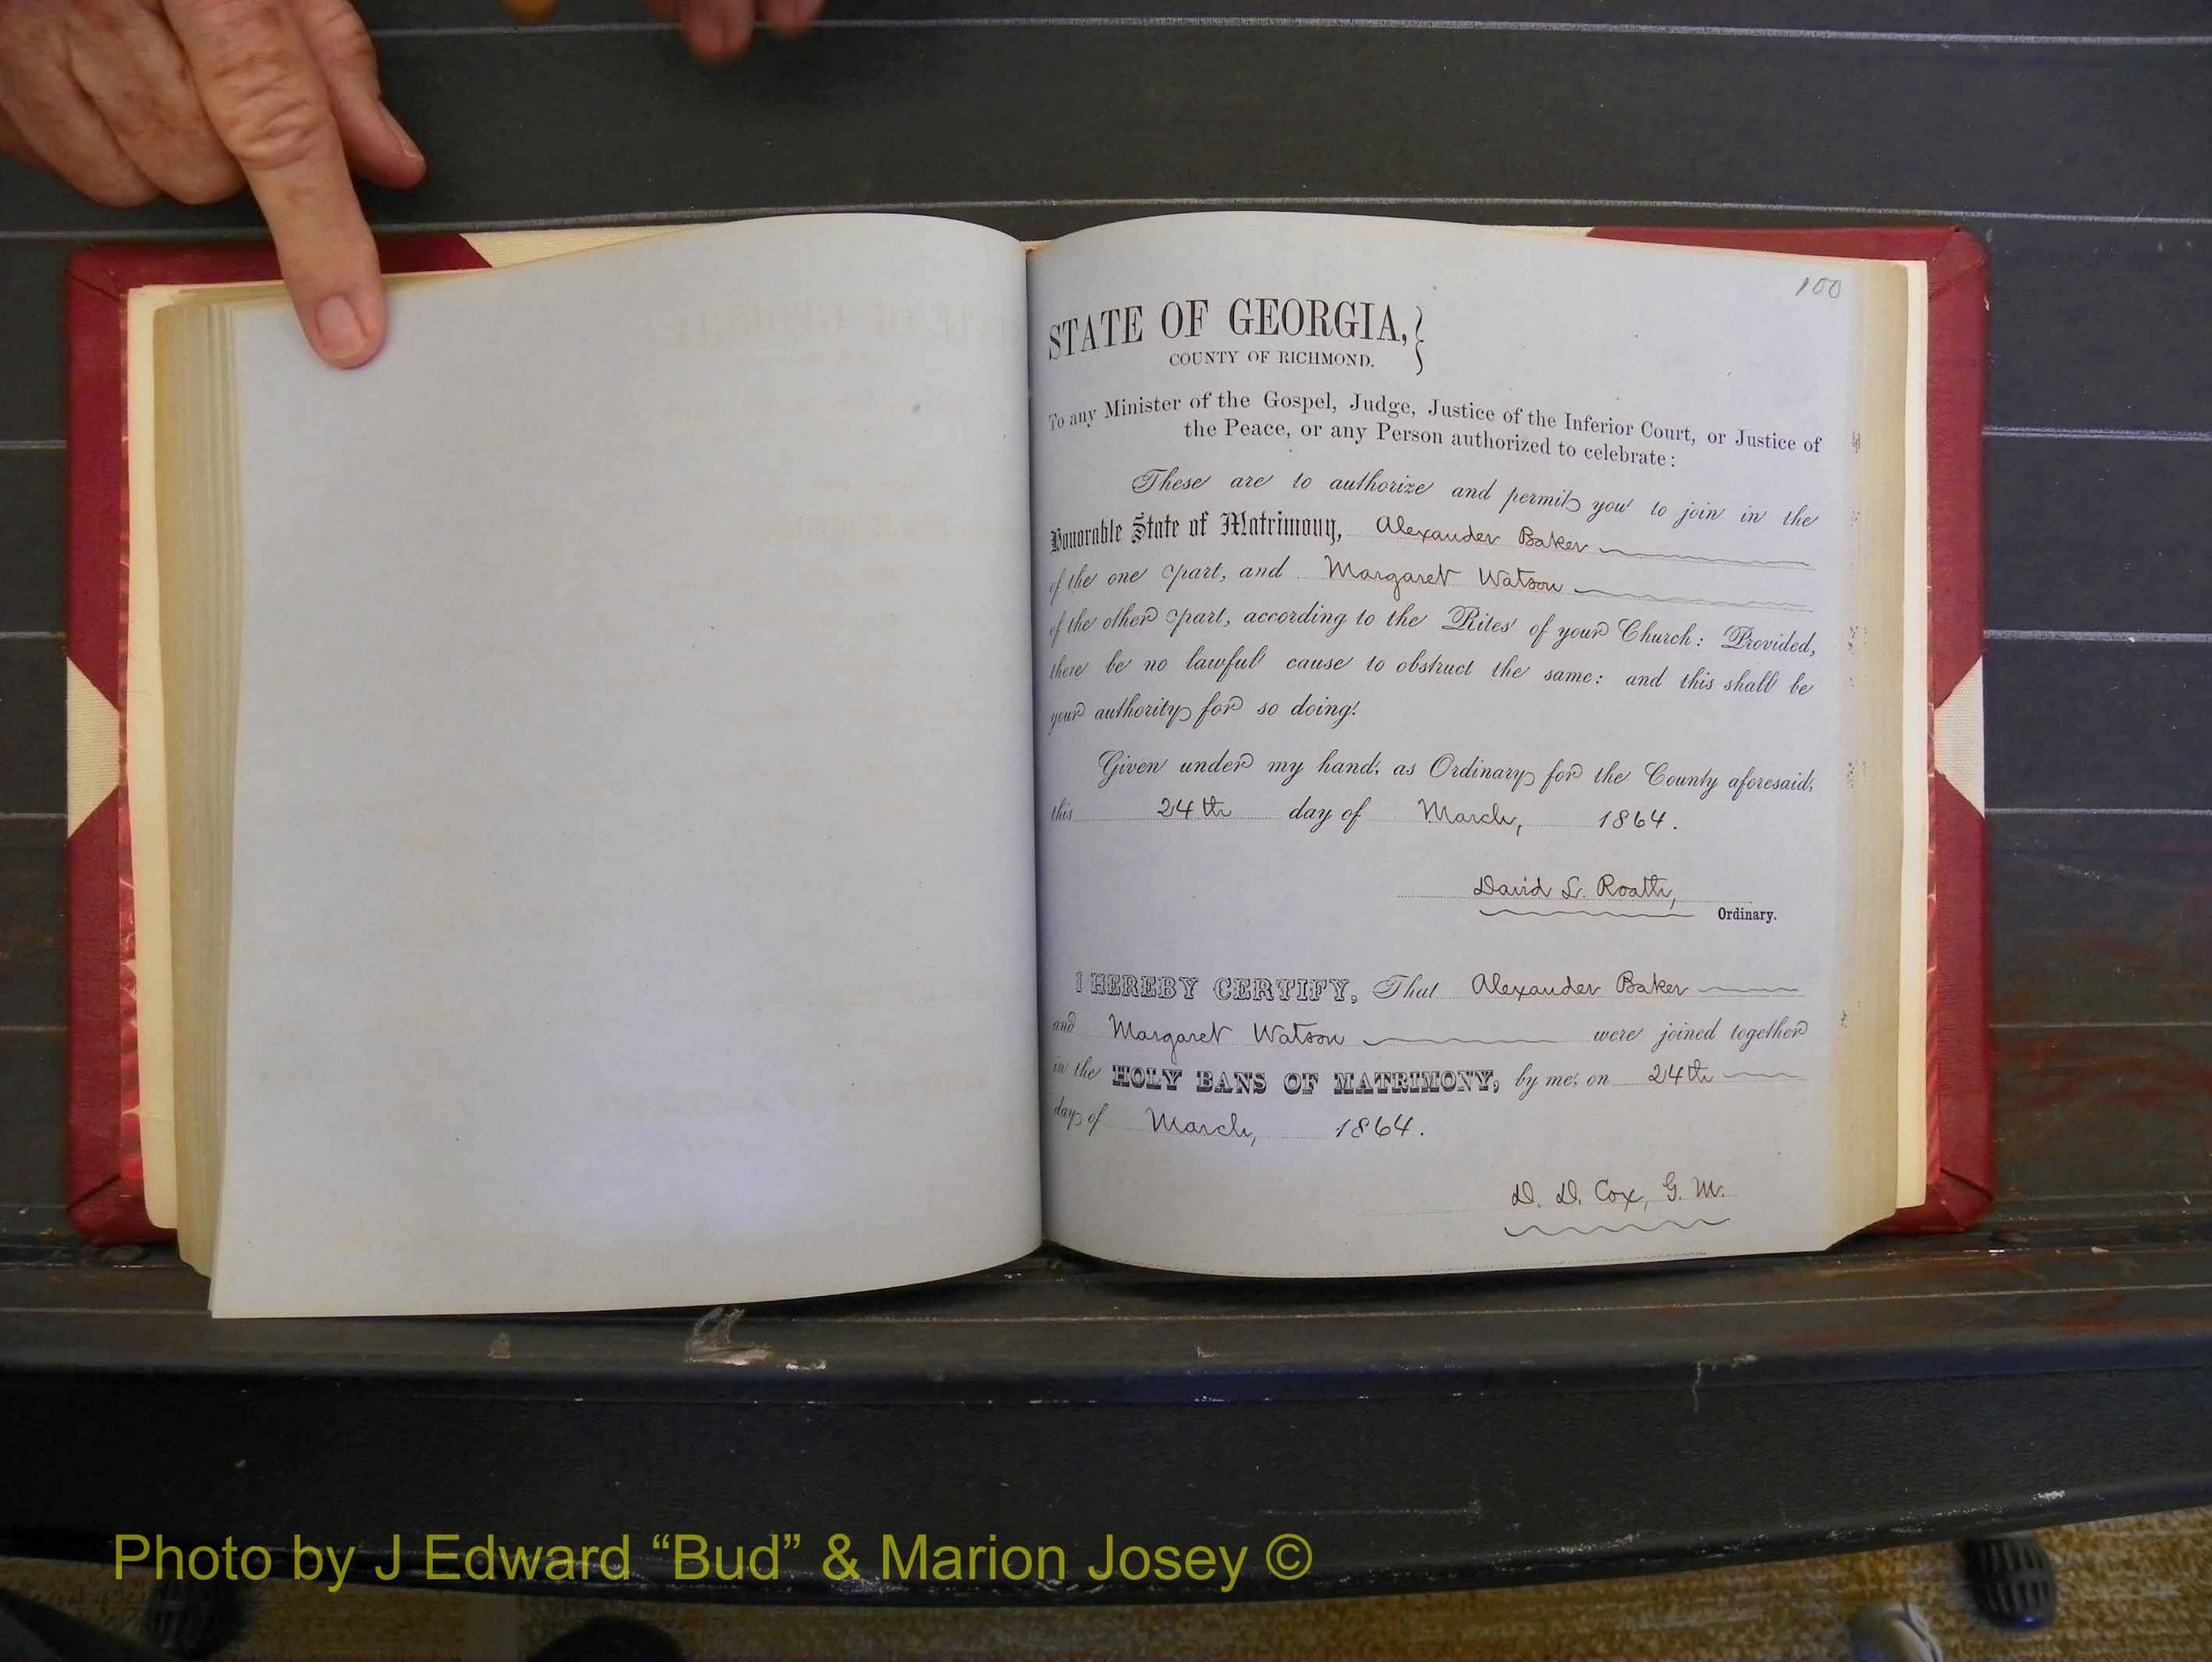 100
STATE OF GEORGIA,
COUNTY OF RICHMOND.
To any Minister of the Gospel, Judge, Justice of the Inferior Court, or Justice of
the Peace, or any Person authorized to celebrate:
These are to authorize and permit you to join in the
Honorable State of Matrimony, Alexander Baker
of the one part, and Margaret Watson
of the other part, according to the Rites of your Church: Provided,
there be no lawful cause to obstruct the same: and this shall be
your authority for so doing.
Given under my hand, as Ordinary for the County aforesaid,
this 24th day of March, 1864.
David L. Roath,
Ordinary.
I HEREBY CERTIFY, That Alexander Baker
and Margaret Watson were joined together
in the HOLY BANS OF MATRIMONY, by me, on 24th
day of March, 1864.
D. D. Cox, G. M.
Photo by J Edward “Bud” & Marion Josey ©